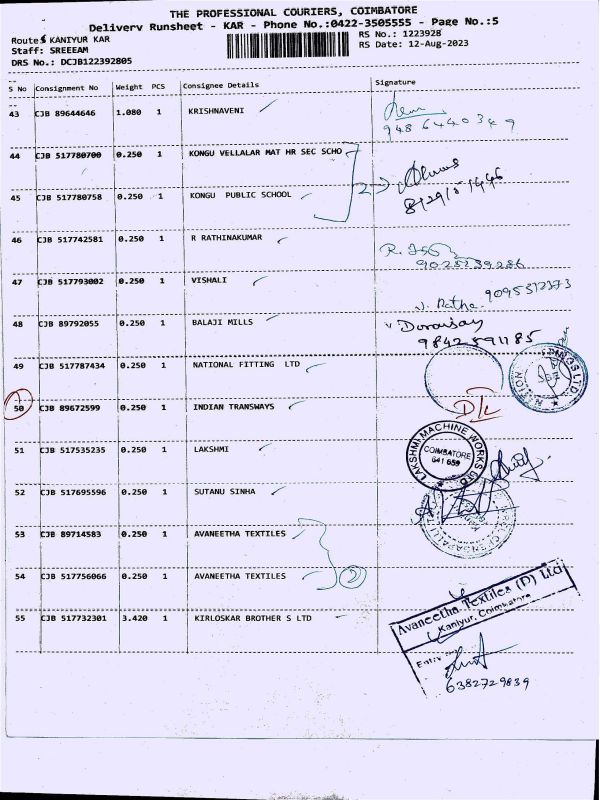 THE PROFESSIONAL COURIERS, COIMBATORE
Delivery Runsheet - KAR - Phone No.:0422-3505555 - Page No.:5
Route: KANIYUR KAR
RS No.: 1223928
Staff: SREEEAM
RS Date: 12-Aug-2023
DRS No.: DCJB122392805
S No Consignment No Weight PCS Consignee Details Signature
43 CJB 89644646 1.080 1 KRISHNAVENI
9486440349
44 CJB 517780700 0.250 1 KONGU VELLALAR MAT HR SEC SCHO
45 CJB 517780758 0.250 1 KONGU PUBLIC SCHOOL
46 CJB 517742581 0.250 1 R RATHINAKUMAR
47 CJB 517793002 0.250 1 VISHALI
9095312373
V. Ratha
48 CJB 89792055 0.250 1 BALAJI MILLS
9842591185
49 CJB 517787434 0.250 1 NATIONAL FITTING LTD
50 CJB 89672599 0.250 1 INDIAN TRANSWAYS
D/L
51 CJB 517535235 0.250 1 LAKSHMI
LAKSHMI MACHINE WORKS LTD
COIMBATORE
641 659
52 CJB 517695596 0.250 1 SUTANU SINHA
53 CJB 89714583 0.250 1 AVANEETHA TEXTILES
54 CJB 517756066 0.250 1 AVANEETHA TEXTILES
2
55 CJB 517732301 3.420 1 KIRLOSKAR BROTHER S LTD
Avaneetha Textiles (P) Ltd
Kaniyur, Coimbatore
6382729839